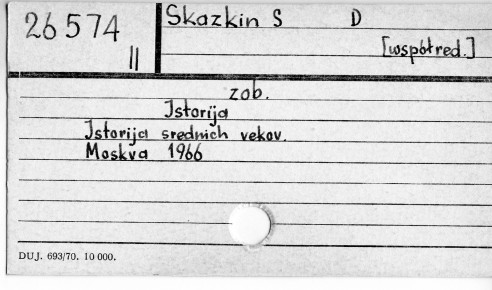 26574
II
Skazkin S D
[współred.]
zob.
Istorija
Istorija srednich vekov.
Moskva 1966
DUJ. 693/70. 10 000.